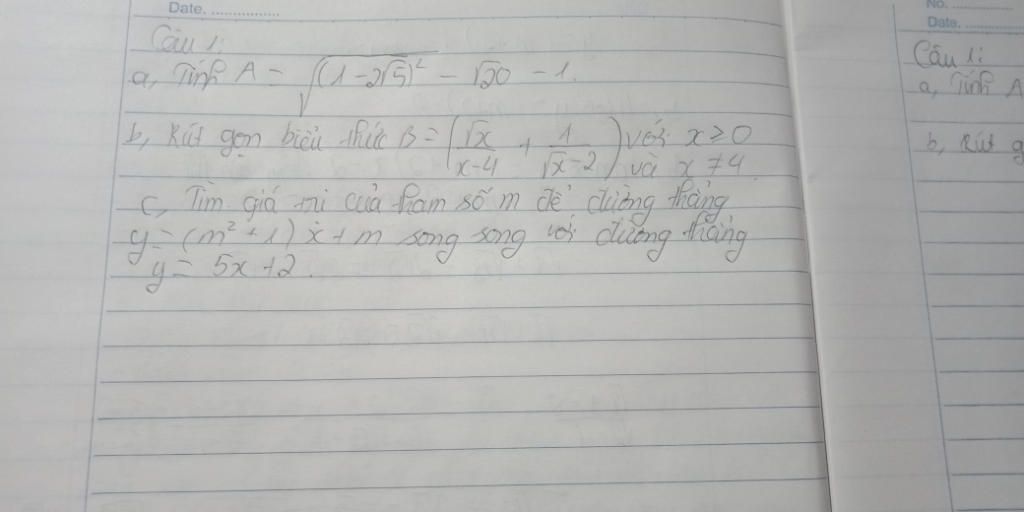 Date.
Câu 1:
a, Tính A = √(1-2√5)² - √20 - 1.
b, Rút gọn biểu thức B = (√x/x-4 + 1/√x-2) với x ≥ 0 và x ≠ 4.
c, Tìm giá trị của tham số m để đường thẳng
y = (m² + 1) x + m song song với đường thẳng
y = 5x + 2.
No.
Date.
Câu 1:
a, Tính A
b, Rút g